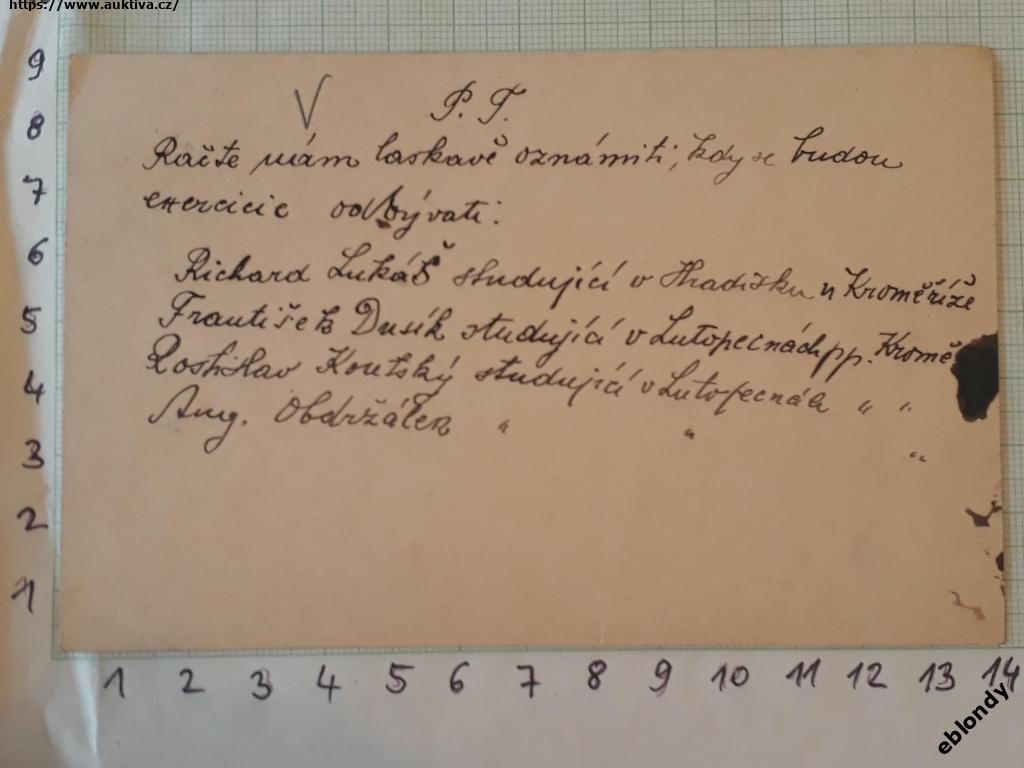 https://www.auktiva.cz/
V
P. T.
Račte nám laskavě oznámiti, kdy se budou
exercicie odbývati.
Richard Lukáš studující v Hradisku u Kroměříže
František Dusík studující v Lutopecnách pp. Kromě
Rostislav Koutský studující v Lutopecnách " "
Aug. Obdržálek " " "
9
8
7
6
5
4
3
2
1
1 2 3 4 5 6 7 8 9 10 11 12 13 14
eblondy